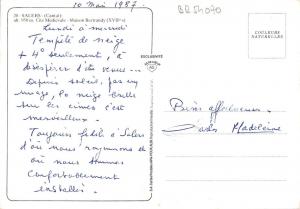 10 Mai 1987
BR54090
20 SALERS (Cantal)
alt. 950 m. Cité Médiévale - Maison Bertrandy (XVIe s)
Lundi à mardi
Tempête de neige
+ 4° seulement, à
désespérer d'être venus ...
Depuis soleil, pas un
nuage, la neige brille
sur les cimes c'est
merveilleux
Toujours fidèle à Salers
d'où nous rayonnons et
où nous sommes
confortablement
installés.
EXCLUSIVITÉ
COULEURS
NATURELLES
Bises affectueuses
Madeleine